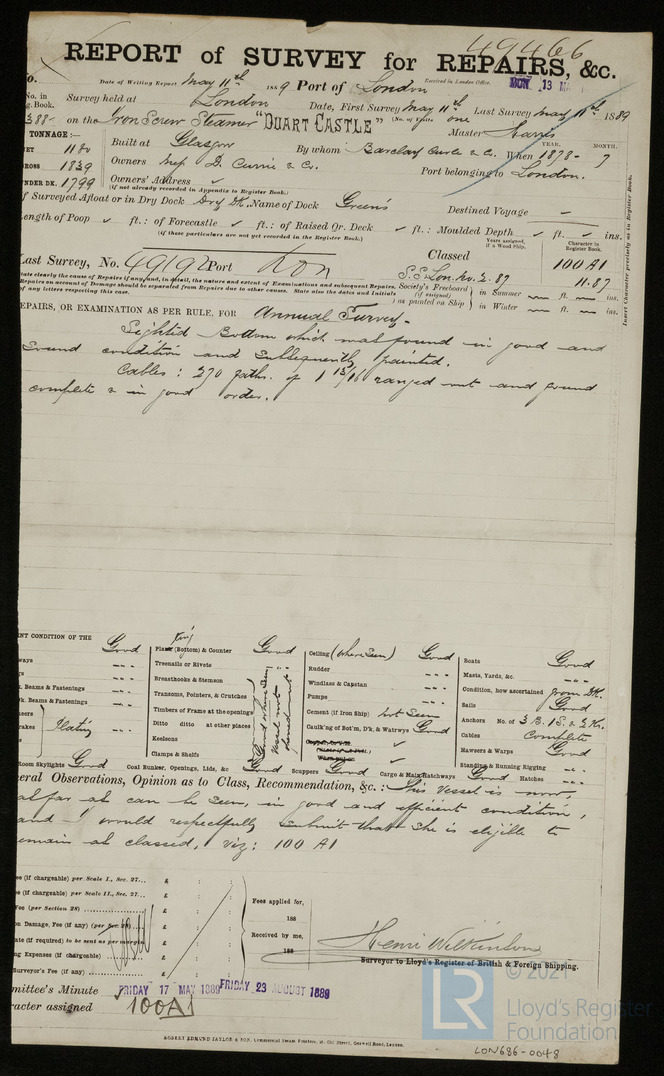 49466
REPORT of SURVEY for REPAIRS, &c.
o. Date of Writing Report May 11th 1889 Port of London Received in London Office, MON 13 MAY
No. in Survey held at London Date, First Survey May 11th Last Survey May 11th 1889
g. Book.
388 on the Iron Screw Steamer "DUART CASTLE" (No. of Visits one Master Harris
TONNAGE:—
ET 1180 Built at Glasgow By whom Barclay Curle & Co. When 1878 - 7
YEAR. MONTH.
ROSS 1839 Owners D. Currie & Co. Port belonging to London.
NDER DK. 1799 Owners' Address ✓
(if not already recorded in Appendix to Register Book.)
f Surveyed Afloat or in Dry Dock Dry Dk. Name of Dock Green's Destined Voyage —
ength of Poop ✓ ft.: of Forecastle ✓ ft.: of Raised Qr. Deck ✓ ft.: Moulded Depth ✓ ft. ✓ ins.
(if these particulars are not yet recorded in the Register Book.)
Years assigned, if a Wood Ship. Character in Register Book.
ast Survey, No. 49192 Port Lon Classed 100 A1
S.S. Lon. No. 2. 87 11.87
tate clearly the cause of Repairs if any, and, in detail, the nature and extent of Examinations and subsequent Repairs.
Repairs on account of Damage should be separated from Repairs due to other causes. State also the dates and initials
of any letters respecting this case.
Society's Freeboard (if assigned) as painted on Ship } in Summer — ft. — ins.
in Winter — ft. — ins.
Insert Character precisely as in Register Book.
EPAIRS, OR EXAMINATION AS PER RULE, FOR Annual Survey.
Sighted Bottom which was found in good and
sound condition and subsequently painted.
Cables: 270 faths. of 1 13/16 ranged out and found
complete & in good order.
NT CONDITION OF THE
Good
ways
gs
. Beams & Fastenings
k. Beams & Fastenings
eers
rakes Plating
Room Skylights Good
Plank (Bottom) & Counter Good
Treenails or Rivets
Breasthooks & Stemson
Transoms, Pointers, & Crutches
Timbers of Frame at the openings
Ditto ditto at other places
Keelsons
Clamps & Shelfs
Good where seen
Coal Bunker, Openings, Lids, &c Good Scuppers Good Cargo & Main Hatchways Good Hatches
Ceiling (where seen) Good
Rudder
Windlass & Capstan
Pumps
Cement (if Iron Ship) not seen
Caulk'ng of Bot'm, D'k, & Watrwys Good
Boats Good
Masts, Yards, &c.
Condition, how ascertained from Dk.
Sails Good
Anchors No. of 3 B. 1 S. & 2 K.
Cables Complete
Hawsers & Warps Good
Standing & Running Rigging
eral Observations, Opinion as to Class, Recommendation, &c.: This Vessel is now,
as far as can be seen, in good and efficient condition,
and I would respectfully submit that she is eligible to
remain as classed, viz: 100 A1
ee (if chargeable) per Scale I., Sec. 27... £ : :
ee (if chargeable) per Scale II., Sec. 27... £ : :
Fee (per Section 28) £ : :
on Damage, Fee (if any) (per Sec. 28) £ : :
ate (if required) to be sent as per margin £ : :
ng Expenses (if chargeable) £ : :
Surveyor's Fee (if any) £ : :
Fees applied for,
188
Received by me,
188
Henri Wilkinson
Surveyor to Lloyd's Register of British & Foreign Shipping.
mmittee's Minute FRIDAY 17 MAY 1889 FRIDAY 23 AUGUST 1889
racter assigned 100A1
© 2021
LR
Lloyd's Register
Foundation
ROBERT EDMUND TAYLOR & SON, Commercial Steam Printers, 19, Old Street, Goswell Road, London.
LON686-0048